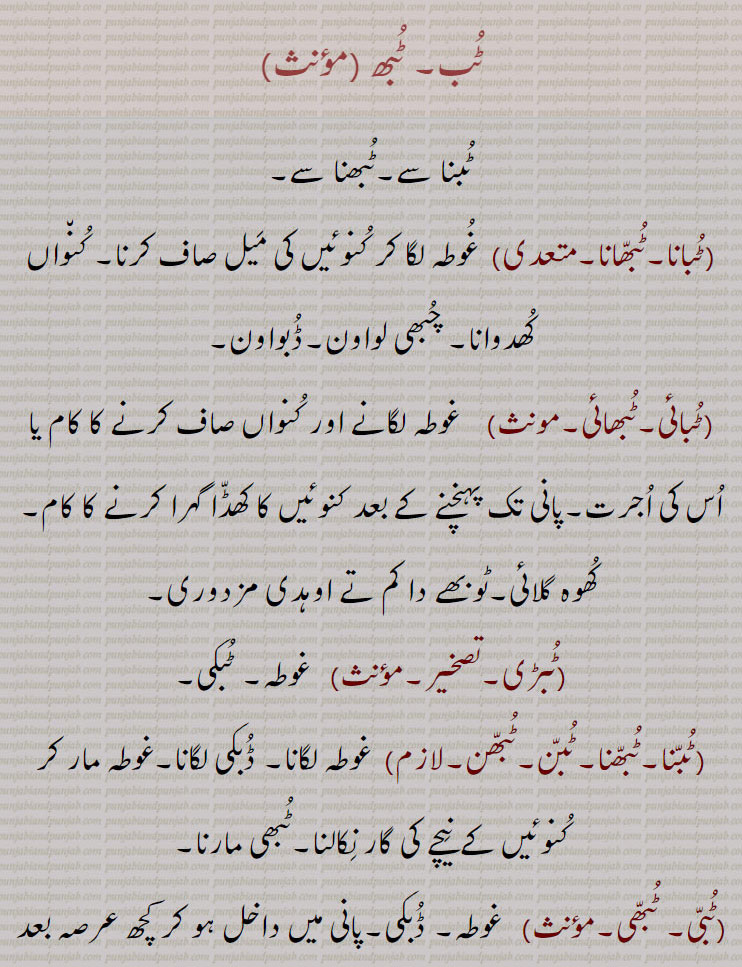 ٹُب۔ ٹُبھ (مؤنث)
ٹُبنا سے۔ٹُبھنا سے۔
(ٹُبانا۔ٹُبھّانا۔متعدی) غُوطہ لگا کر کُنوئیں کی مَیل صاف کرنا۔ کُنّواں
کُھدوانا۔ چُبھی لواون۔ڈُبواون۔
(ٹُبائی۔ٹُبھائی۔مونث) غوطہ لگانے اور کُنواں صاف کرنے کا کام یا
اُس کی اُجرت۔پانی تک پہنچنے کے بعد کنوئیں کا کھڈّا گہرا کرنے کا کام۔
کُھوہ گلائی۔ٹوبھے دا کم تے اوہدی مزدوری۔
(ٹُبڑی۔تصخیر۔مؤنث) غوطہ۔ ٹُبکی۔
(ٹُبّنا۔ٹُبھّنا۔ٹُبّن۔ٹُبھّن۔لازم) غوطہ لگانا۔ ڈُبکی لگانا۔غوطہ مار کر
کُنوئیں کے نیچے کی گار نِکالنا۔ٹُبھی مارنا۔
(ٹُبّی۔ ٹُبھّی۔مؤنث) غوطہ۔ ڈُبکی۔پانی میں داخل ہو کر کچھ عرصہ بعد